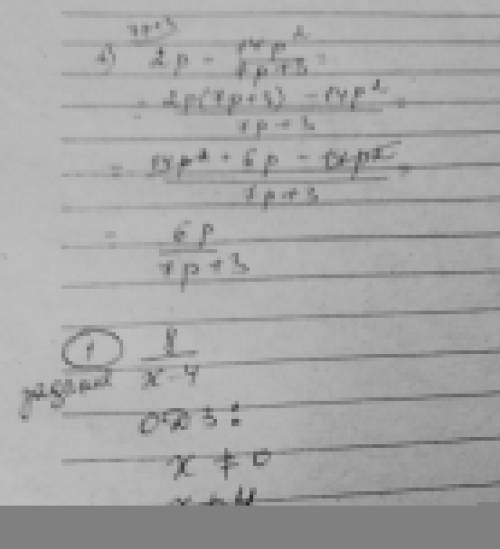 7p+3
2p - 14p² / 7p+3 =
= 2p(7p+3) - 14p² / 7p+3 =
= 14p² + 6p - 14p² / 7p+3 =
= 6p / 7p+3
① 8 / x-4
ОДЗ:
x ≠ 0